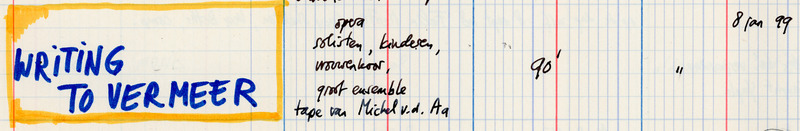 opera
8 jan 99
solisten, kinderen,
WRITING
vrouwenkoor,
90'
"
TO VERMEER
groot ensemble
tape van Michel v.d. Aa